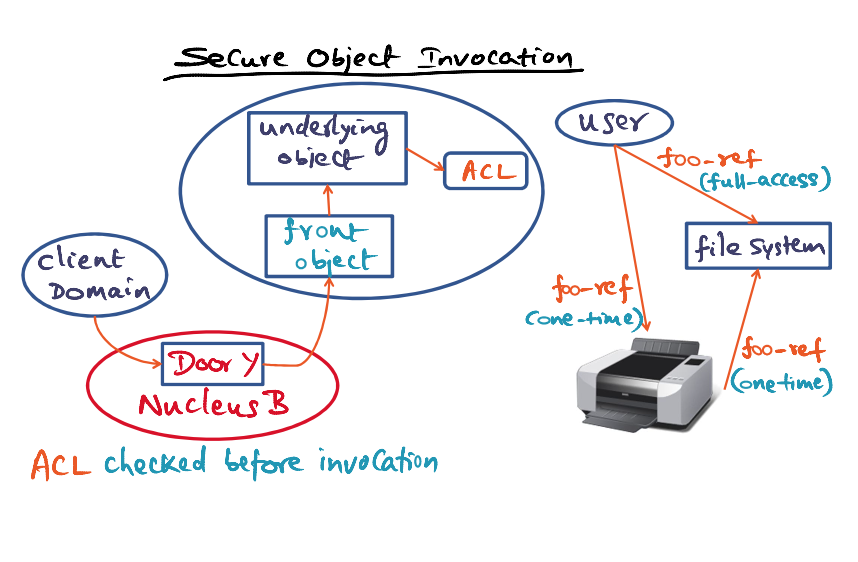 Secure Object Invocation
underlying
object
ACL
front
object
client
Domain
Door Y
Nucleus B
ACL checked before invocation
user
foo-ref
(full-access)
file system
foo-ref
(one-time)
foo-ref
(onetime)